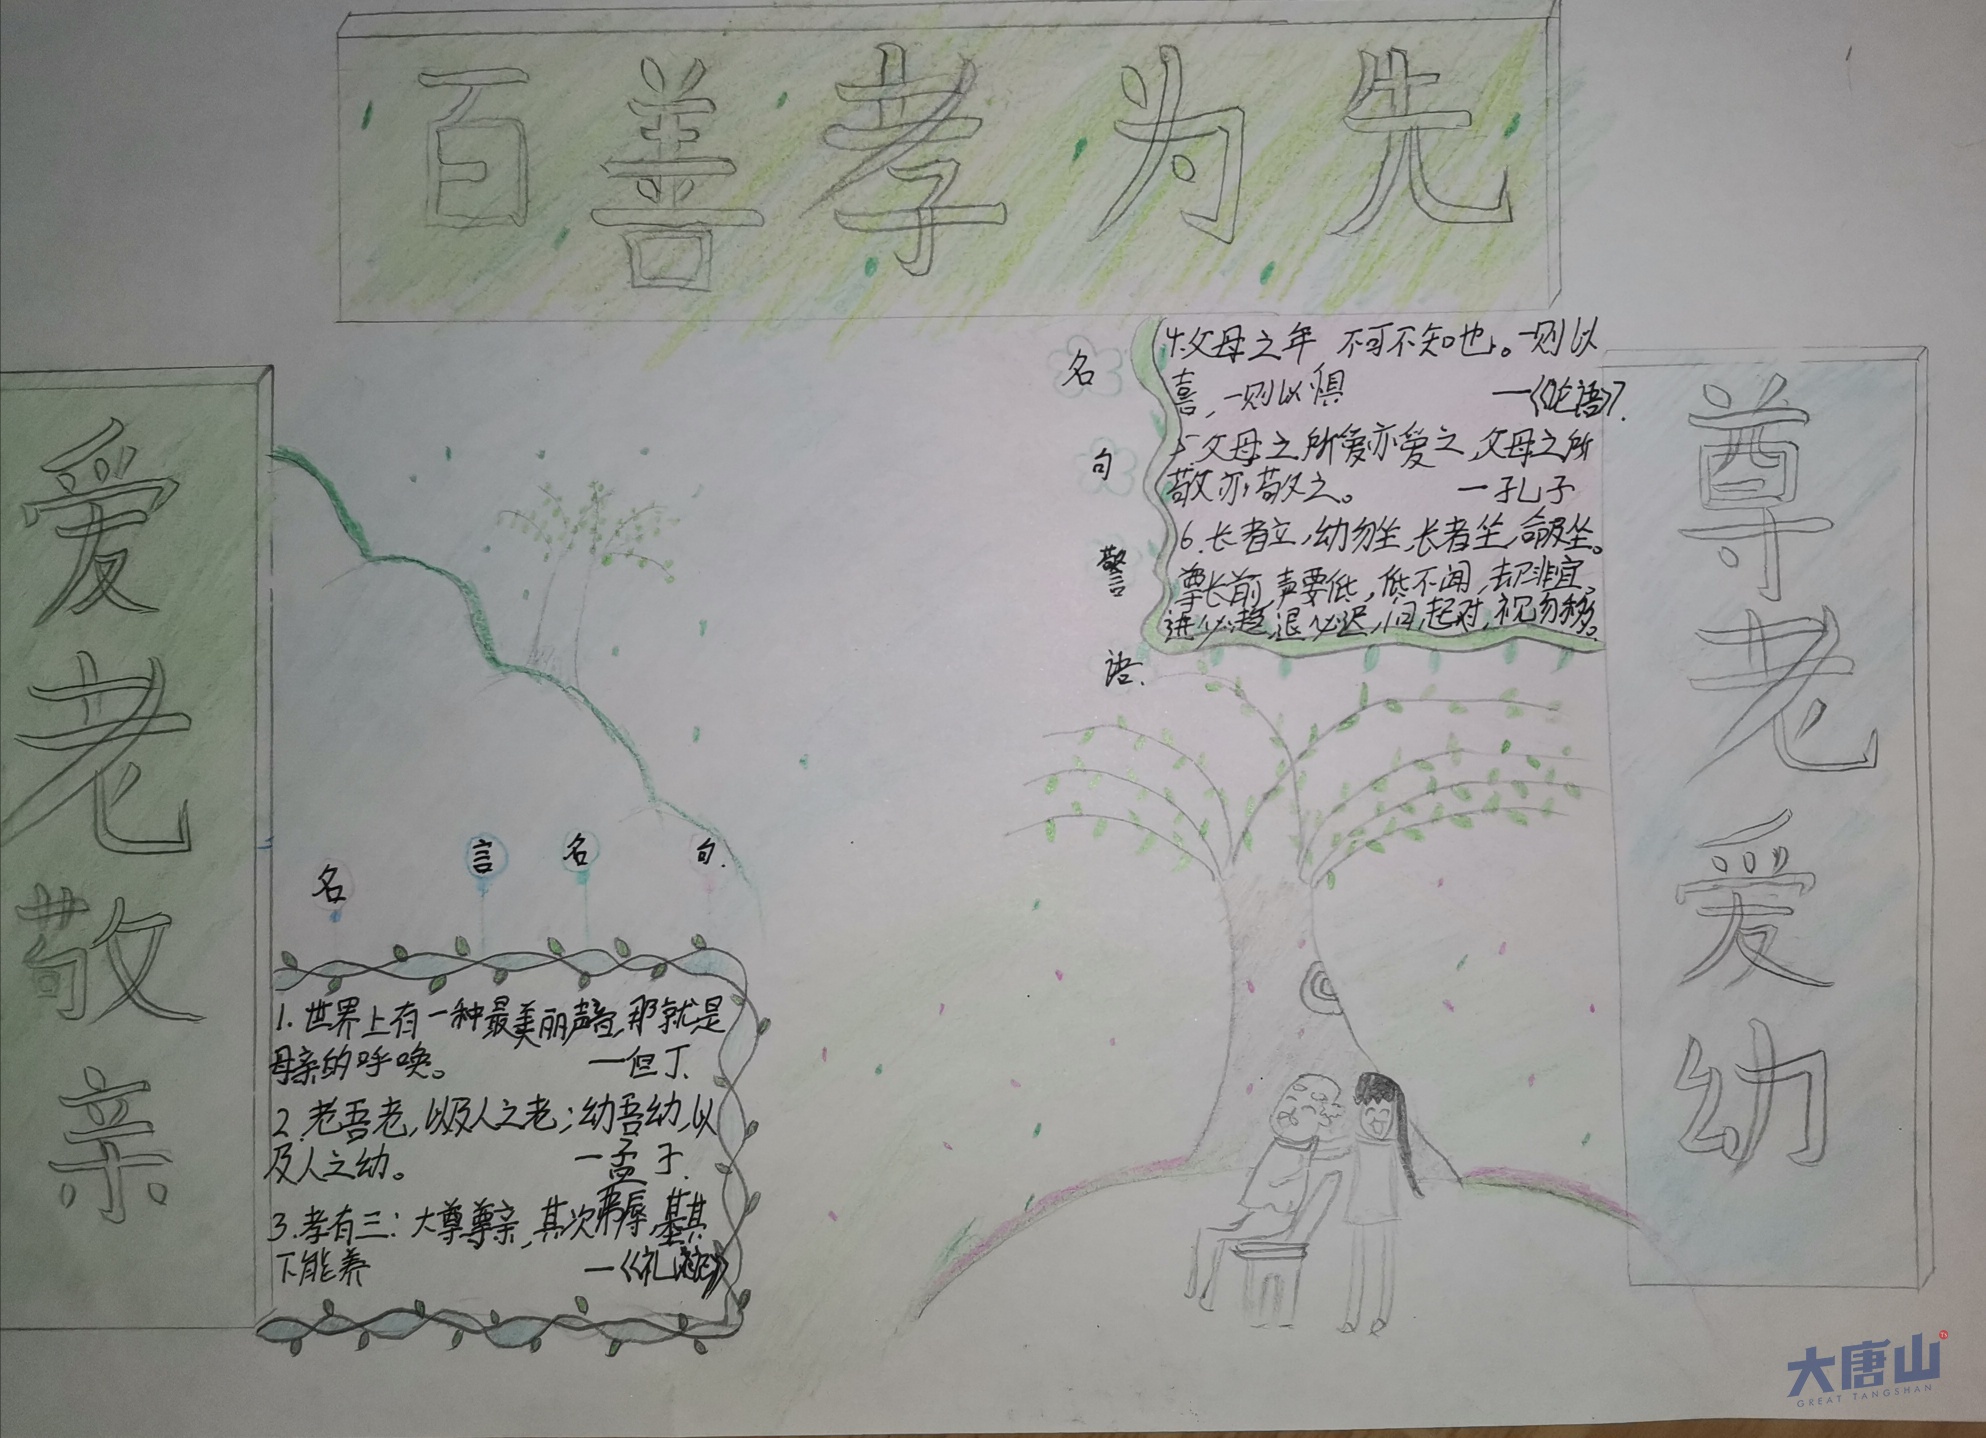 百善孝为先
爱老敬亲
名言名句.
1.世界上有一种最美丽声音,那就是
母亲的呼唤。 —但丁
2.老吾老,以及人之老;幼吾幼,以
及人之幼。 —孟子.
3.孝有三:大尊尊亲,其次弗辱,其
下能养 —《礼记》
名句警语.
4.父母之年 不可不知也。一则以
喜,一则以惧 —《论语》.
5.父母之所爱亦爱之,父母之所
敬亦敬之。 —孔子
6.长者立,幼勿坐,长者坐,命及坐。
尊长前,声要低,低不闻,却非宜,
进必趋,退必迟,问起对,视勿移。
尊老爱幼
大唐山
GREAT TANGSHAN